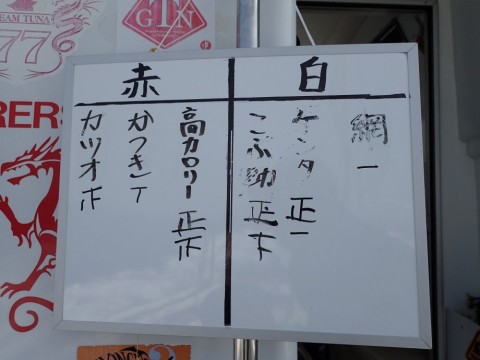 TEAM TUNA
777
GTN
RERS
赤
白
網 一
ケンタ 正一
こぶ助 正下
高カロリー 正下
かつき 丅
カツオ 下